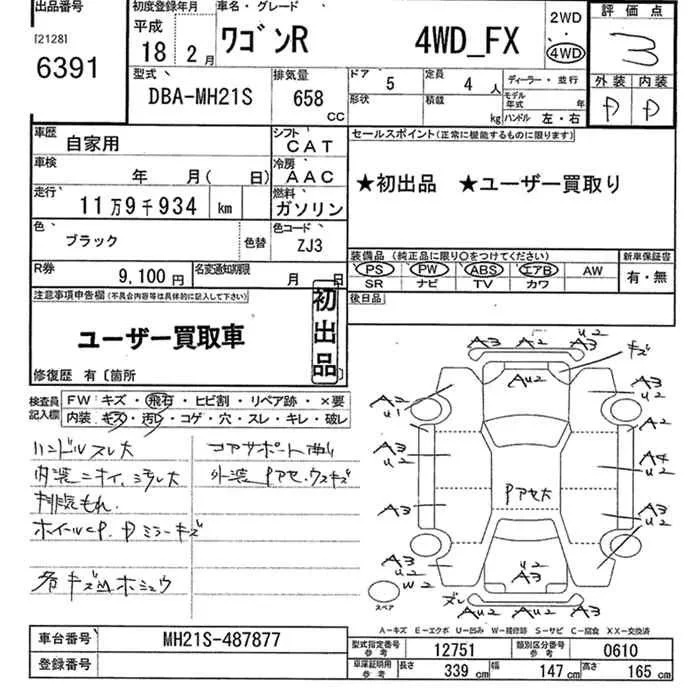 出品番号
[2128]
6391
初度登録年月
平成
18 2月
車名・グレード
ワゴンR 4WD_FX
2WD
4WD
評価点
3
外装 内装
D D
型式
DBA-MH21S
排気量
658
CC
ドア
5
定員
4人
ディーラー・並行
形状
積載
kg
モデル年式 年
ハンドル 左・右
車歴
自家用
シフト
CAT
車検
年 月( 日)
冷房
AAC
走行
11万9千934 km
燃料
ガソリン
色
ブラック
色替
色コード
ZJ3
R券
9,100円
名変通知期限
月 日
セールスポイント(正常に機能するものに限ります)
★初出品 ★ユーザー買取り
装備品 (純正品に限り○をつけてください)
PS PW ABS エアB AW
SR ナビ TV カワ
新車保証書
有・無
後日品
注意事項申告欄(不具合内容等は具体的に記入して下さい)
ユーザー買取車
初出品
修復歴 有〔箇所
検査員記入欄
FW キズ・飛石・ヒビ割・リペア跡・×要
内装 キズ・汚レ・コゲ・穴・スレ・キレ・破レ
ハンドルスレ大
内装ニオイ、ヨゴレ大
排気もれ
ホイールCP. Dミラーキズ
各キズ凹ホシュウ
コアサポート曲り
外装Pアセ、ウスキズ
A3 AU2 A3 U2
キズ
AU2
A2 U1
A3 U2
A3
A3 U2
A2
A4 U2
A3 U2
Pアセ大
A3 U2 W2
U2 A3
ズレ
AU2 AU2 A3 U2
スペア
A-キズ E-エクボ U-凹み W-補修跡 S-サビ C-腐食 XX-交換済
車台番号
MH21S-487877
登録番号
型式指定番号 参考
12751
類別区分番号 参考
0610
車庫証明用 参考
長さ 339cm 幅 147cm 高さ 165cm